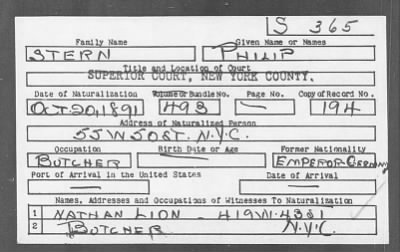 S 365
Family Name Given Name or Names
STERN PHILIP
Title and Location of Court
SUPERIOR COURT, NEW YORK COUNTY.
Date of Naturalization Volume or Bundle No. Page No. Copy of Record No.
OCT. 20, 1891 493 — 194
Address of Naturalized Person
55 W 50 ST. N.Y.C.
Occupation Birth Date or Age Former Nationality
BUTCHER — EMPEROR GERMANY
Port of Arrival in the United States Date of Arrival
— —
Names, Addresses and Occupations of Witnesses To Naturalization
1 NATHAN LION - 419 W. 43 St
2 BUTCHER N.Y.C.